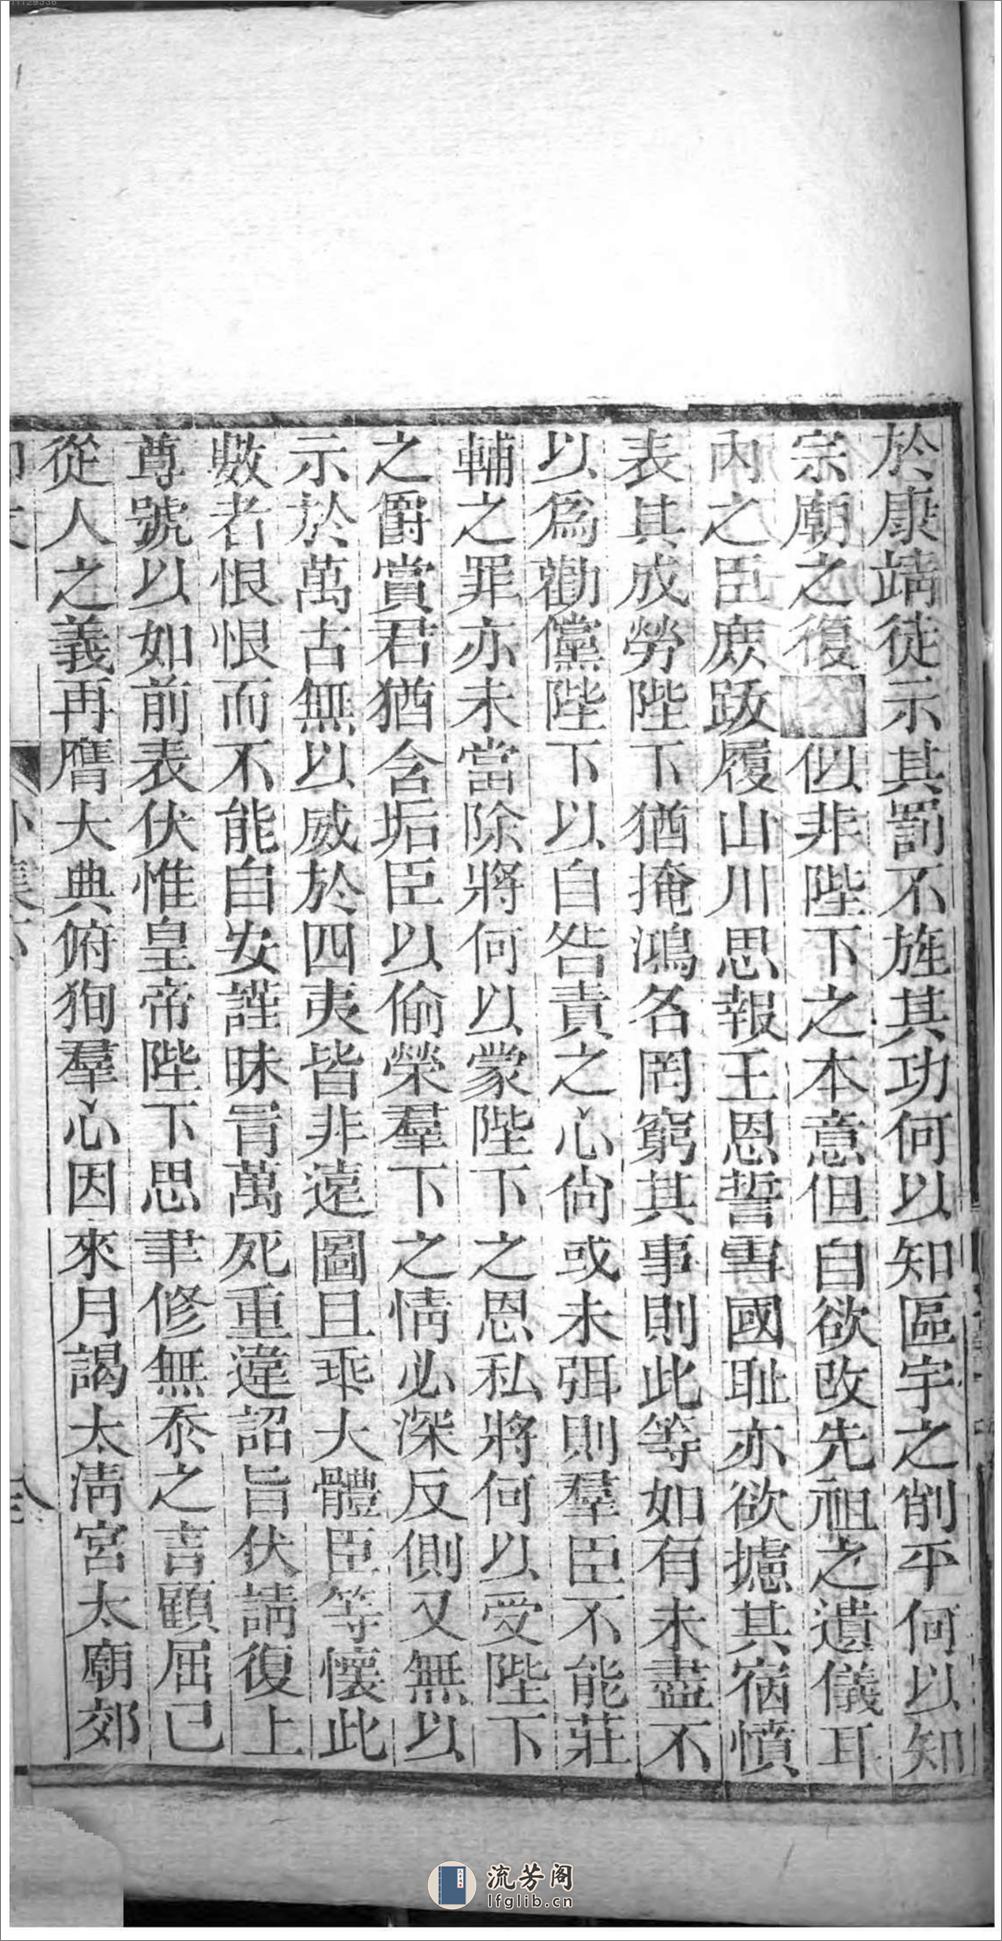 於康靖徒示其罰不旌其功何以知區宇之削平何以知
宗廟之復 似非陛下之本意但自欲改先祖之遺儀耳
內之臣庻跋履山川思報王恩誓雪國耻亦欲攄其宿憤
表其成勞陛下猶掩鴻名罔窮其事則此等如有未盡不
以爲勸儻陛下以自咎責之心尙或未弭則羣臣不能莊
輔之罪亦未當除將何以蒙陛下之恩私將何以受陛下
之爵賞君猶含垢臣以偷榮羣下之情必深反側又無以
示於萬古無以威於四夷皆非遠圖且乖大體臣等懷此
數者恨恨而不能自安謹昧冐萬死重違詔旨伏請復上
尊號以如前表伏惟皇帝陛下思聿修無忝之言顧屈己
從人之義再膺大典俯狥羣心因來月謁太清宮太廟郊
外集下
流芳阁
lfglib.cn